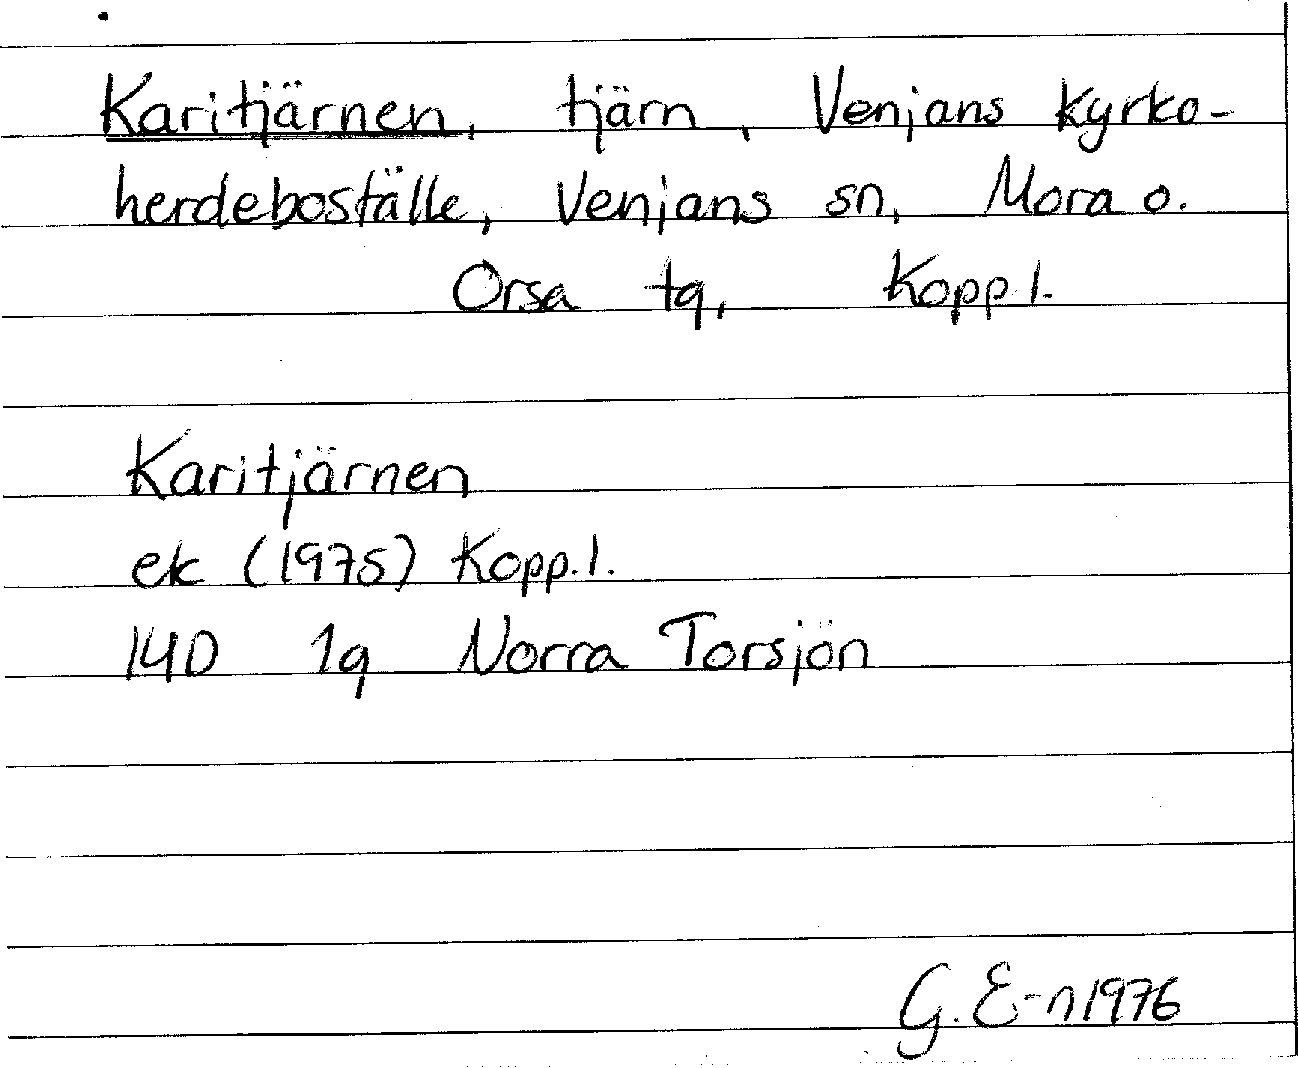 Karitjärnen, tjärn, Venjans kyrko-
herdeboställe, Venjans sn, Mora o.
Orsa tg, Kopp l.
Karitjärnen
ek (1975) Kopp. l.
14D 1g Norra Torsjön
G. E-n 1976